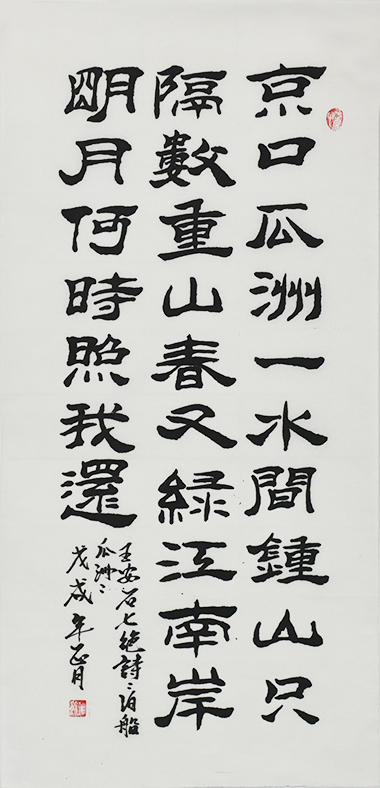 京口瓜洲一水間鍾山只
隔數重山春又綠江南岸
明月何時照我還
王安石七絕詩:泊船
瓜洲:
戊戌年正月